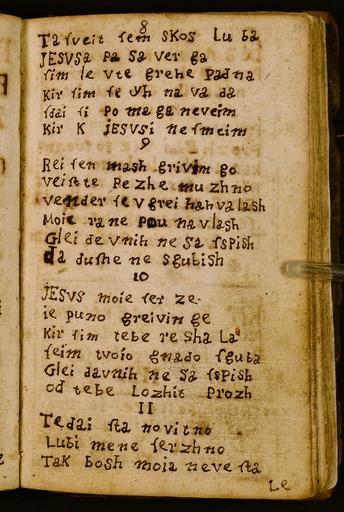 8
Ta ſveit ſem skos Lu ba
JESVSa pa sa ver ga
ſim ſe vte grehe padna
Kir ſim ſe yh na va da
ſdai ſi po ma ga neveim
Kir K JESVSi ne ſmeim
9
Rei ſen mash grivim go
veiſte pe zhe mu zhno
vender ſe v grei hah va lash
Moie ra ne pou na vlash
Glei de vnih ne sa ſspish
da duſhe ne sgubish
10
JESVS moie ſer ze
ie puno greivin ge
Kir ſim tebe re sha La
ſeim tvoio gnado ſguba
Glei davnih ne sa ſspish
od tebe Lozhit prozh
II
Tedai ſta novitno
Lubi mene ſerzhno
Tak bosh moia neve ſta
Le